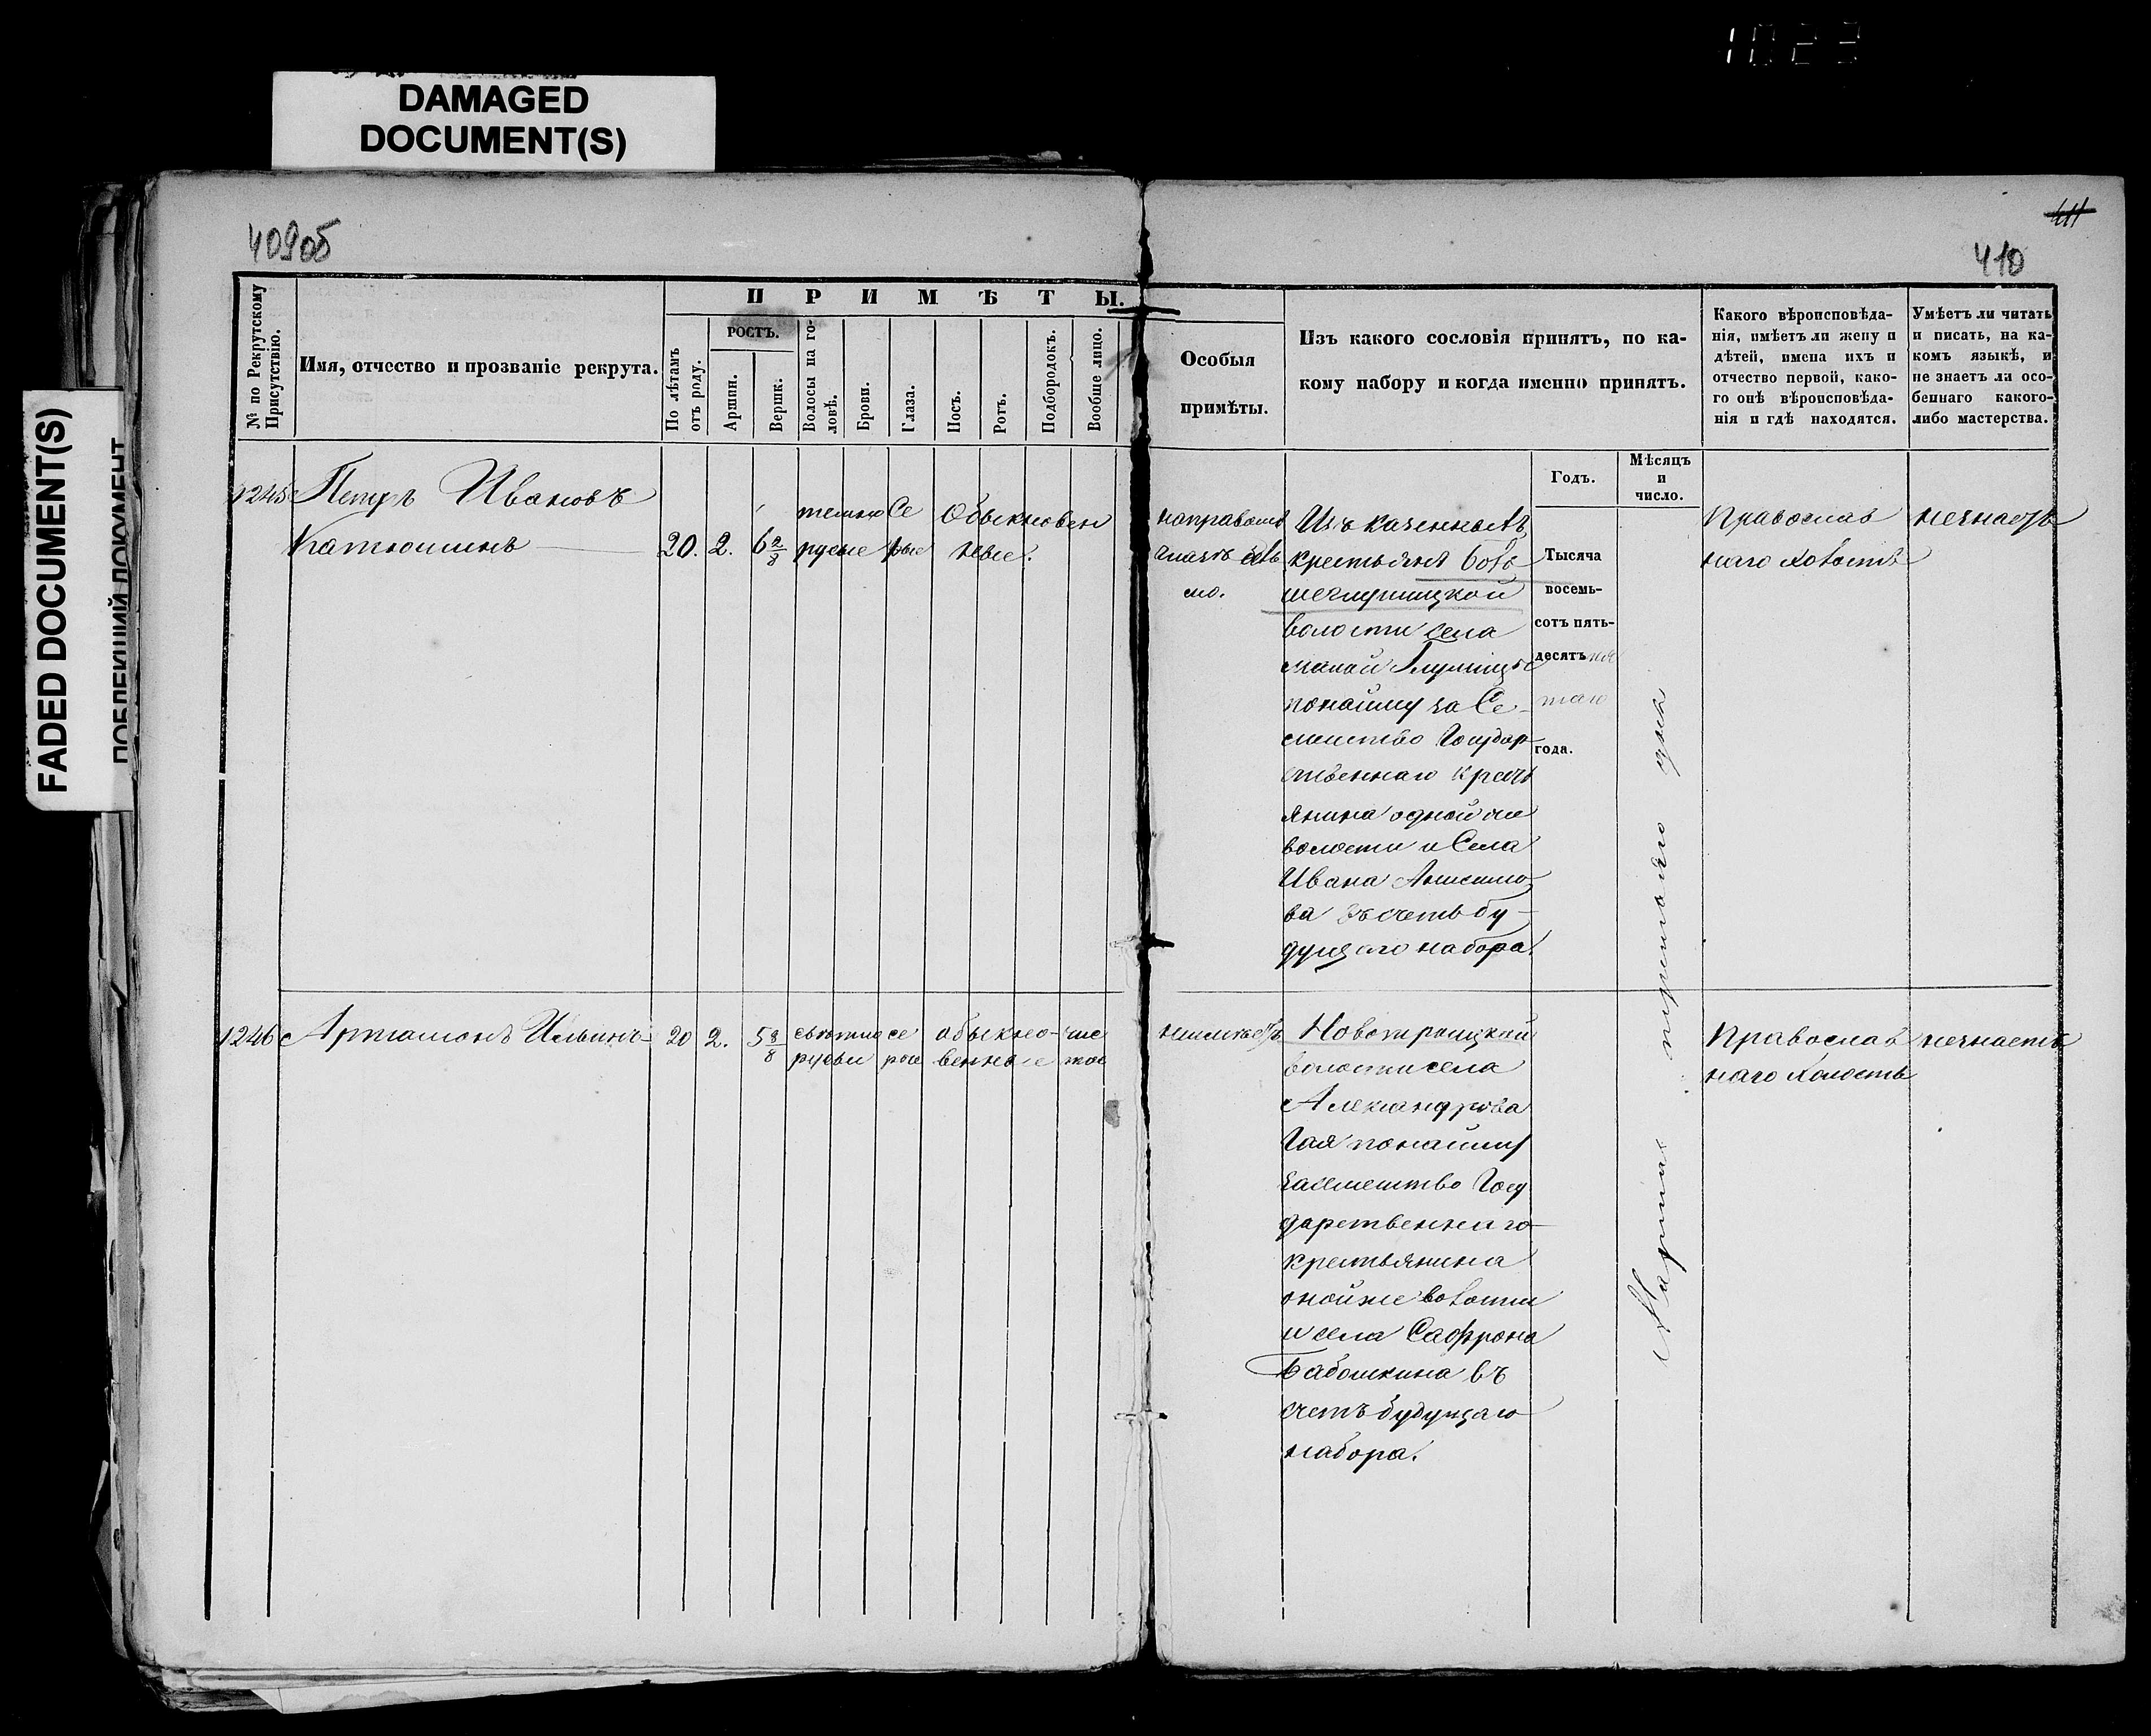 1023
DAMAGED
DOCUMENT(S)
FADED DOCUMENT(S)
409об
411
410
№ по Рекрутскому
Присутствію.
Имя, отчество и прозваніе рекрута.
ПРИМѢТЫ.
По лѣтамъ
отъ роду.
РОСТЪ.
Аршин.
Вершк.
Волосы на го-
ловѣ.
Брови.
Глаза.
Носъ.
Ротъ.
Подбородокъ.
Вообще лицо.
Особыя
примѣты.
Изъ какого сословія принятъ, по ка-
кому набору и когда именно принятъ.
Какого вѣроисповѣда-
нія, имѣетъ ли жену и
дѣтей, имена ихъ и
отчество первой, како-
го онѣ вѣроисповѣда-
нія и гдѣ находятся.
Умѣетъ ли читать
и писать, на ка-
комъ языкѣ, и
не знаетъ ли осо-
беннаго какого-
либо мастерства.
Годъ.
Мѣсяцъ
и
число.
1245 Петръ Ивановъ
Катюшинъ
20. 2. 6 2/8
темно
русые
Се
рые
Обыкновен
ные.
направомъ
глазѣ
мо.
Изъ казенныхъ
крестьянъ
волости села
малой Глушицы
понайму за Се-
мейство Государ
ственнаго кресть
янина одной же
волости и Села
Ивана Анисимо
ва въ счетъ бу-
дущаго набора.
Тысяча
восемь-
сотъ пять-
десятъ пя
таго
года.
Марта перваго дня
Православ
наго холостъ
незнаетъ
1246 Артамонъ Ильинъ
20 2. 5 3/8
свѣтло
русы
се
рые
обыкно-
венные
чис
тое
неимѣетъ
Новотроицкой
волости села
Александрова
Гая понайму
засемейство Госу
дарственнаго
крестьянина
оной же волости
и села Сафрона
Бабошкина въ
счетъ будущаго
набора.
Православ
наго холостъ
незнаетъ